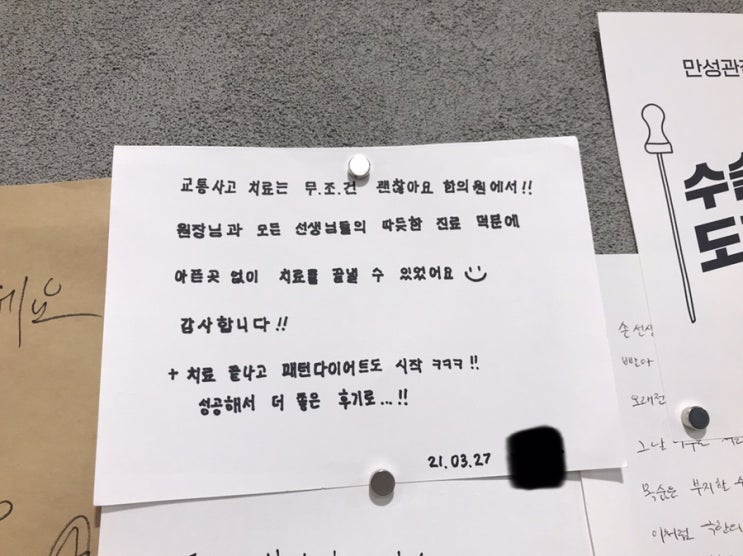 교통사고 치료는 무.조.건 괜찮아요 한의원에서!!
원장님과 모든 선생님들의 따듯한 진료 덕분에
아픈곳 없이 치료를 끝낼 수 있었어요
감사합니다!!
+ 치료 끝나고 패턴다이어트도 시작 ㅋㅋㅋ!!
성공해서 더 좋은 후기로...!!
21.03.27
만성관절
수술
도
손 선생
받아
오래전
그날
목숨은 부지한
이처럼